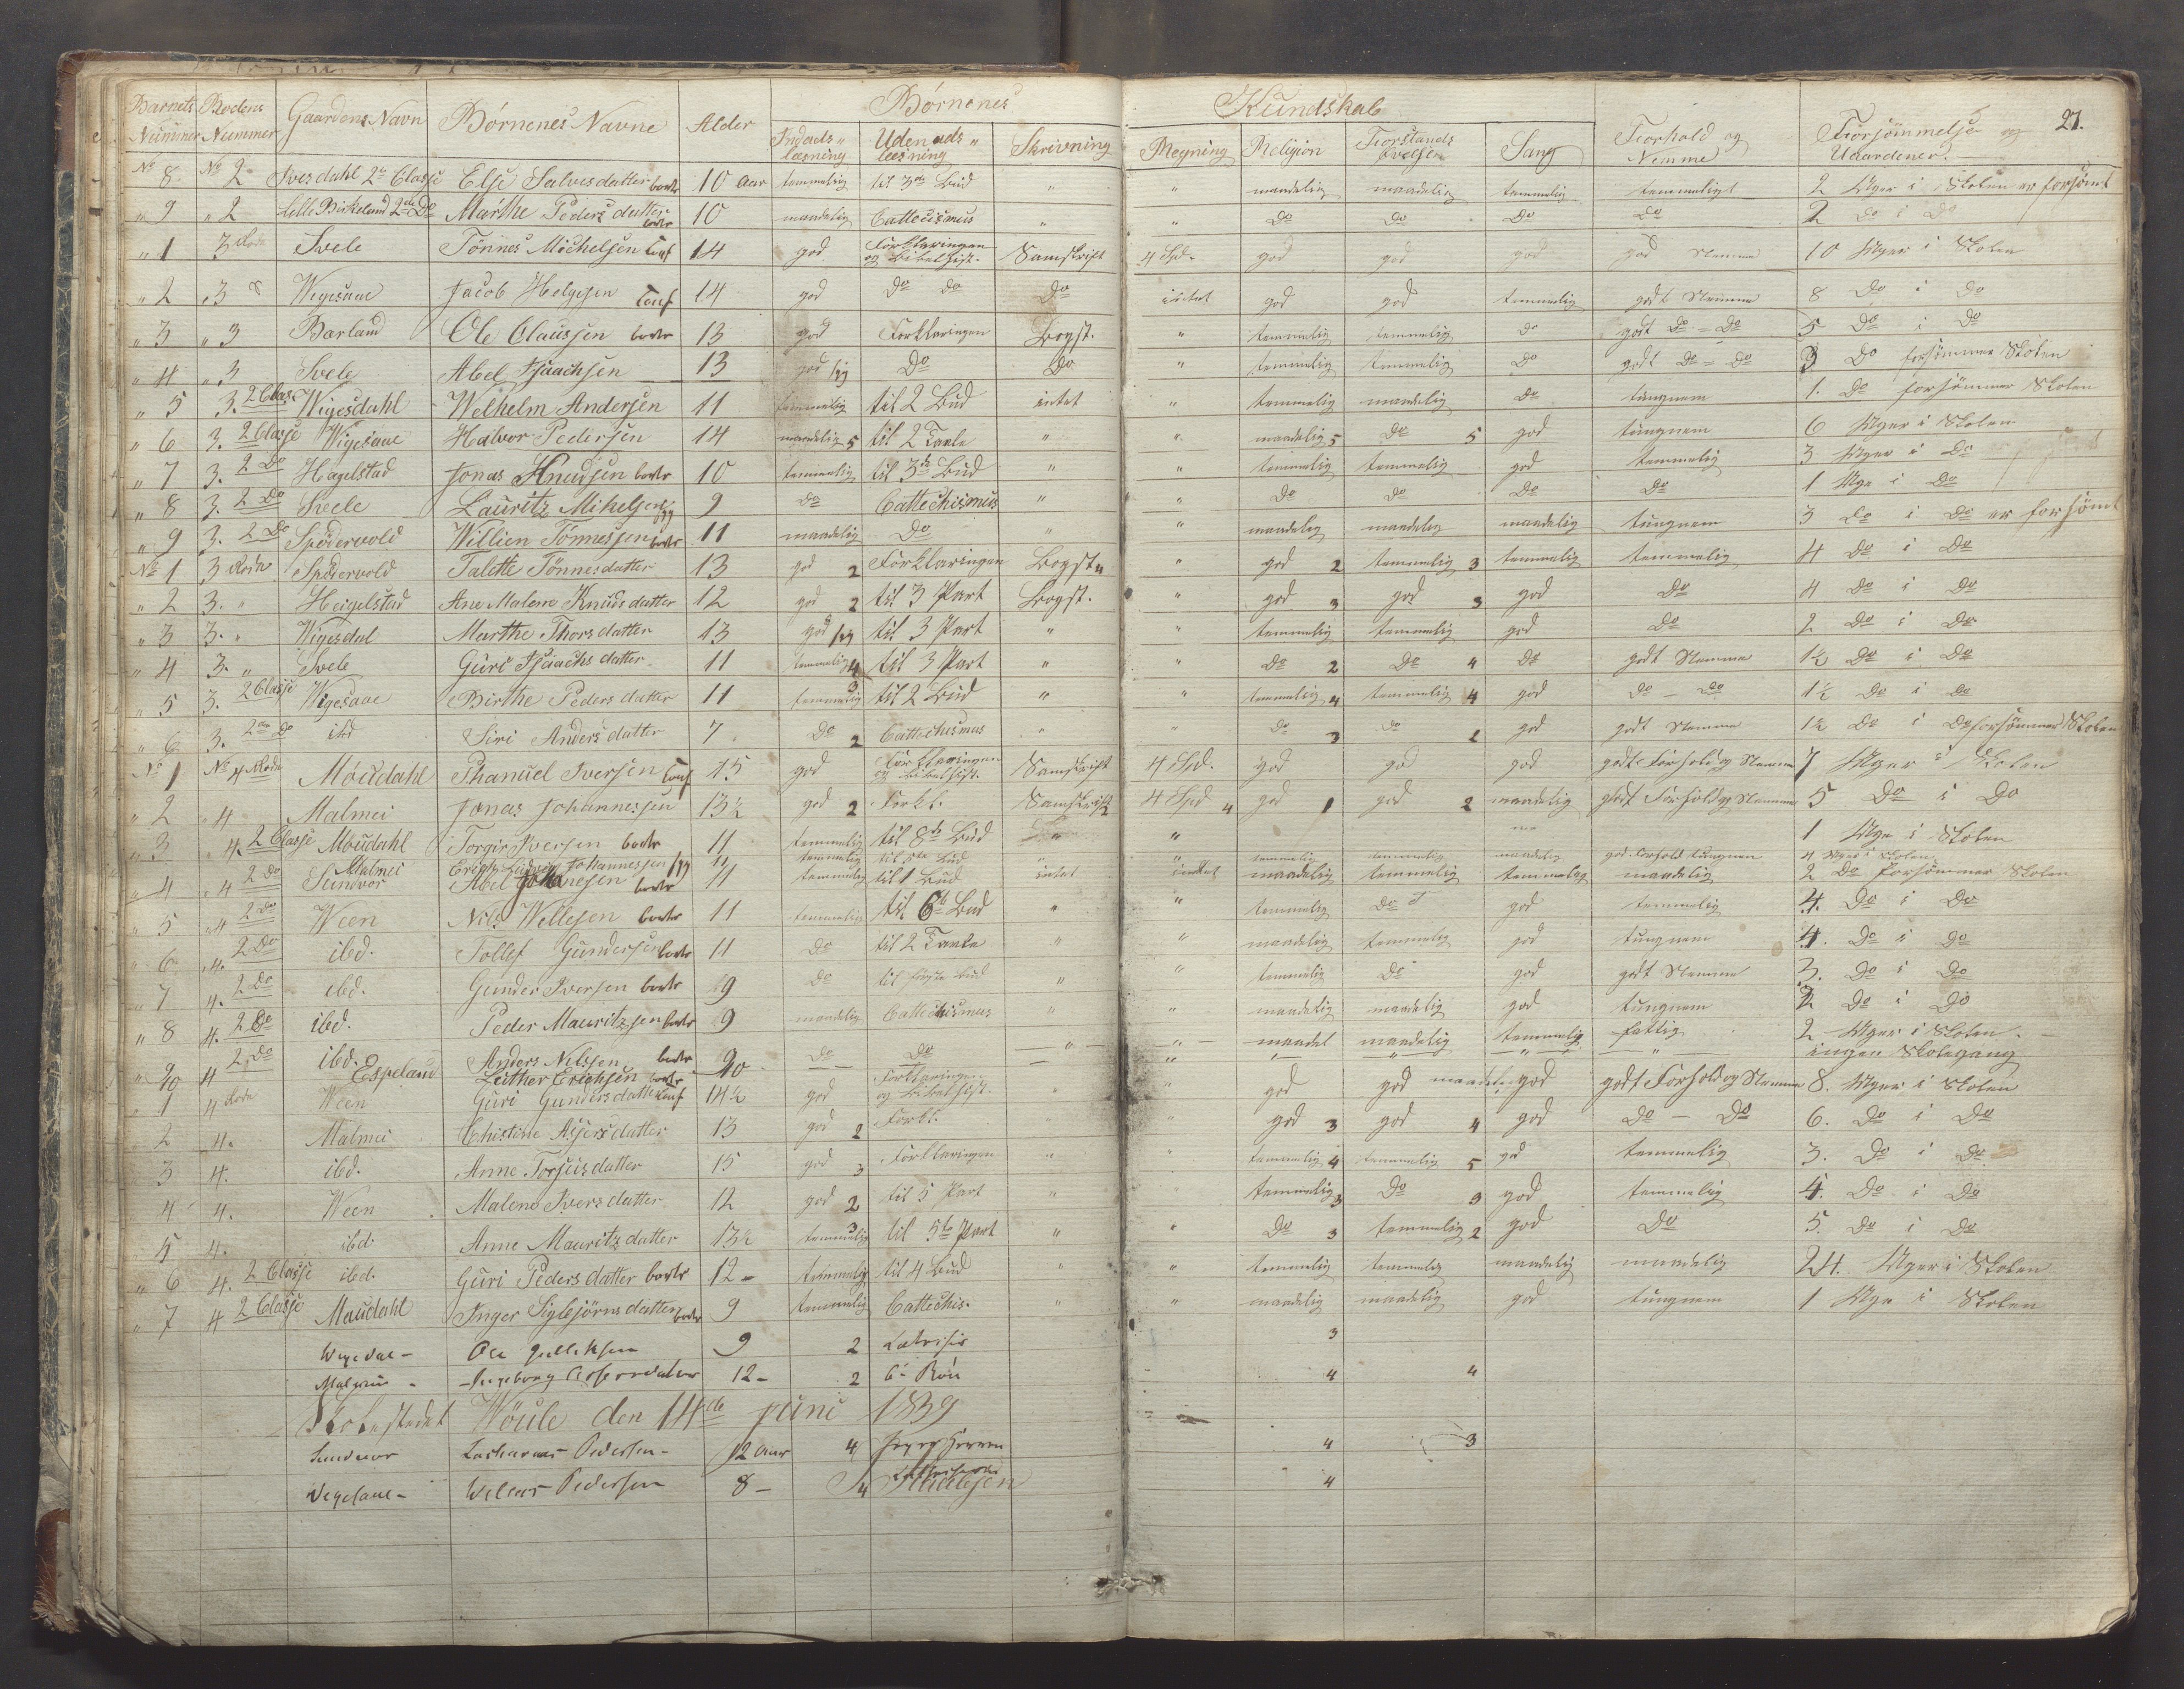 Børnenes Kundskab 27.
Barnets Nummer Rodens Nummer Gaardens Navn Børnenes Navne Alder Indads" læsning Udenads" læsning Skrivning Regning Religion Forstands Øvelsen Sang Forhold og Nemme Forsømmelse og
No 8 No 2 2de Classe Else Salvesdatter borte 10 Aar temmelig til 3de Bud " " maadelig maadelig temmelig temmeligt 2 Uger i Skolen er forsømt
" 9 " 2 Lille Birkeland 2de Do Marthe Pedersdatter borte 10 maadelig Cattecismus " " Do Do Do Do 2 Do i Do
" 1 3 Rode Svele Tønnes Michelsen Conf 14 god Forklaringen og Bibelhist. Samskrift 4 Spd. god god god god Nemme 10 Uger i Skolen
" 2 " 3 Wigesaae Jacob Helgesen Conf 14 god Do Do Do intet god god temmelig godt Nemme 8 Do i Do
" 3 " 3 Barland Ole Claussen borte 13 god Forklaringen Bogst. " temmelig temmelig Do godt Do = Do 5 Do i Do
" 4 " 3 Svele Abel Isaachsen 13 god Do Do " temmelig temmelig Do godt Do = Do 3 Do forsømmer Skolen
" 5 3. 2 Class Wigesdahl Welhelm Andersen 11 temmelig til 2 Bud intet " temmelig maadelig Do tungnem 1. Do forsømmer Skolen
" 6 3. 2 Classe Wigesaae Halvor Pedersen 14 maadelig 5 til 2 Tavle " " maadelig 5 Do 5 god tungnem 6 Uger i Skolen
" 7 3. 2 Do Hagelstad Jonas Knudsen borte 10 temmelig til 3de Bud " " temmelig temmelig god temmelig 3 Uger i Do
" 8 3. 2 Do Svele Lauritz Mikelsen 9 Do Cattechismus " " Do Do Do Do 1 Uge i Do
" 9 3. 2 Do Spødervold Willien Tønnessen borte 11 maadelig Do " " maadelig maadelig maadelig tungnem 3 Do i Do er forsømt
No 1 3 Rode Spødervold Talette Tønnesdatter 13 god 2 Forklaringen Bogst " god 2 temmelig 3 temmelig temmelig 4 Do i Do
" 2 3. " Heigelstad Ane Malene Knudsdatter 12 god 2 til 3 Part Bogst. " god 3 god 3 god Do 4 Do i Do
" 3 3. " Wigesdal Marthe Thorsdatter 13 god til 3 Part " " temmelig temmelig god Do 2 Do i Do
" 4 3. " Svele Guri Isaachsdatter 11 temmelig 4 til 3 Part " " Do 2 Do 4 Do godt Nemme 1½ Do i Do
" 5 3. 2 Classe Wigesaae Birthe Pedersdatter 11 temmelig 3 til 2 Bud " " temmelig 4 temmelig 4 god Do - Do 1½ Do i Do
" 6 3. 2den Do ibd Siri Andersdatter 7 Do 2 Cattechismus " " Do 3 Do god godt Nemme 1½ Do i Do forsømmer Skolen
No 1 No 4 Rode Møudahl Phanuel Iversen Conf 15 god Forklaringen og Bibelhist. Samskrift 4 Spd. god god god godt Forhold og Nemme 7 Uger i Skolen
" 2 " 4 Malmei Jonas Johannessen 13½ god 2 Forkl. Samskrift 2 4 Spd 4 god 1 god 2 maadelig godt Forhold og Nemme 5 Do i Do
" 3 " 4. 2 Classe Møudahl Torgir Iversen borte 11 temmelig til 8de Bud " " 1 Uge i Skolen
Malmei Johannessen 11 temmelig til Bud " " temmelig temmelig maadelig god Forhold tungnem 4 Uger i Skolen
" 4 " 4 2 Do Sundvor Abel Johanesen borte 11 temmelig til 1 Bud intet indtet maadelig temmelig temmelig maadelig 2 Do forsømmer Skolen
" 5 " 4 2 Do Ween Nils Wellesen borte 11 temmelig til 6te Bud " " temmelig Do god temmelig 4. Do i Do
" 6 " 4. 2 Do ibd. Tollef Gundersen borte 11 Do til 2 Tavle " " maadelig temmelig god tungnem 4. Do i Do
" 7 4. 2 Do ibd. Gunder Iversen borte 9 Do til første Bud " " temmelig Do god godt Nemme 3. Do i Do
" 8 4. 2 Do ibd. Peder Mauritzsen borte 9 maadelig Cattechismus " " maadelig maadelig god tungnem 2 Do i Do
" 9 4 2 Do ibd. Anders Nilssen borte 9 Do Do " " maadel maadelig temmelig fattig 2 Uger i Skolen
10 Espeland Luther Erichsen borte 10 " " " " " " ingen Skolegang
" 1 4 Rode Ween Guri Gundersdatter Conf 14½ god Forklaringen og Bibelhist. " " god god maadelig god godt Forhold og Nemme 8. Uger i Skolen
2 4. Malmei Christine Asjersdatter 13 god 2 Forkl. " god 3 god 4 god Do - Do 6. Do i Do
3 4. ibd. Anne Torjusdatter 15 god 3 Forklaringen " " temmelig 4 temmelig 5 god temmelig 3. Do i Do
4 4. Ween Malene Iversdatter 12 god 2 til 5 Part " temmelig 3 Do 3 god temmelig 4. Do i Do
" 5 4. ibd. Anne Mauritzdatter 13½ temmelig 3 til 5te Part " " Do 3 temmelig 2 god Do 5. Do i Do
" 6 4. 2 Classe ibd. Guri Pedersdatter borte 12 temmelig til 4 Bud " " temmelig temmelig maadelig maadelig 24. Uger i Skolen
" 7 4 2 Classe Maudahl Inger Sigbjørnsdatter borte 9 temmelig Cattechis. " " maadelig maadelig god tungnem 1 Uge i Skolen
Ole 9 2 3
Ingeborg 12 2 6 4 4
Skolestedet Wøule den 14de juni 1839
Sundvor Pedersen 12 Aar 4 4 3
Vegesaae Pedersen 8 4 4